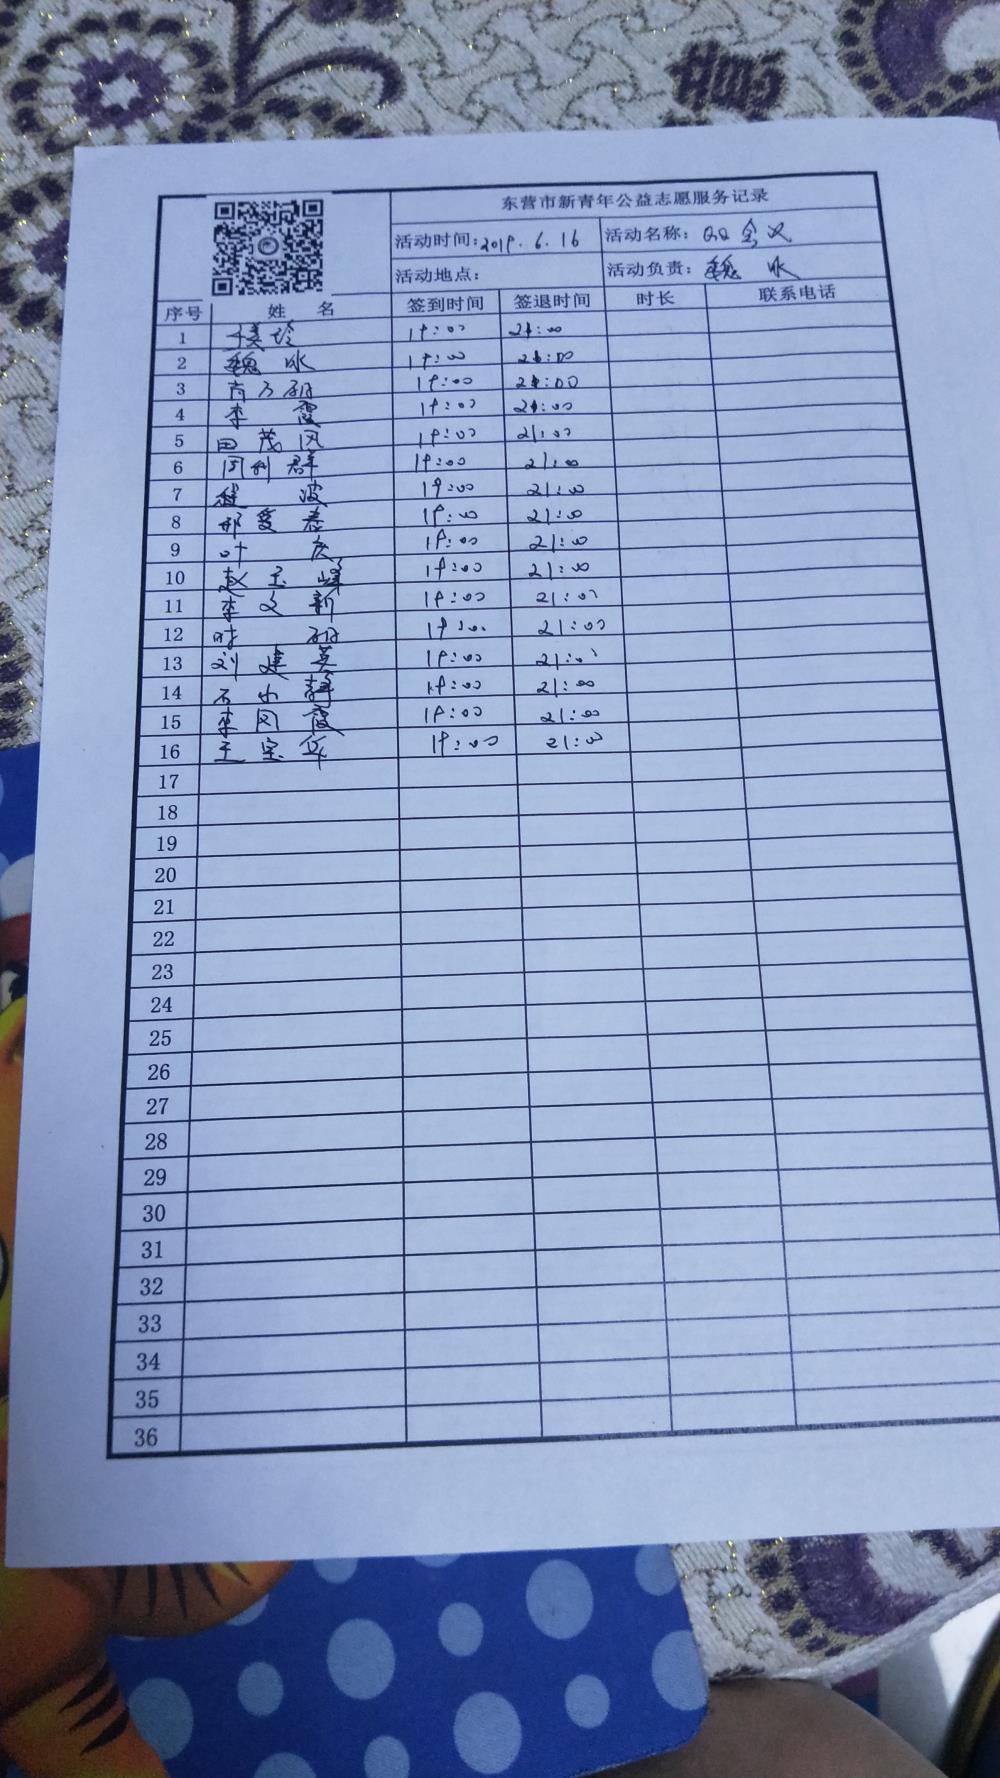 东营市新青年公益志愿服务记录
活动时间:2019.6.16 活动名称: QQ会议
活动地点: 活动负责: 魏冰
序号 姓名 签到时间 签退时间 时长 联系电话
1 19:00 21:00
2 魏冰 19:00 21:00
3 19:00 21:00
4 李霞 19:00 21:00
5 田茂风 19:00 21:00
6 周利群 19:00 21:00
7 程波 19:00 21:00
8 郭爱春 19:00 21:00
9 叶庆 19:00 21:00
10 赵玉峰 19:00 21:00
11 李文新 19:00 21:00
12 时 19:00 21:00
13 刘建英 19:00 21:00
14 石小 19:00 21:00
15 李风霞 19:00 21:00
16 王宝华 19:00 21:00
17
18
19
20
21
22
23
24
25
26
27
28
29
30
31
32
33
34
35
36